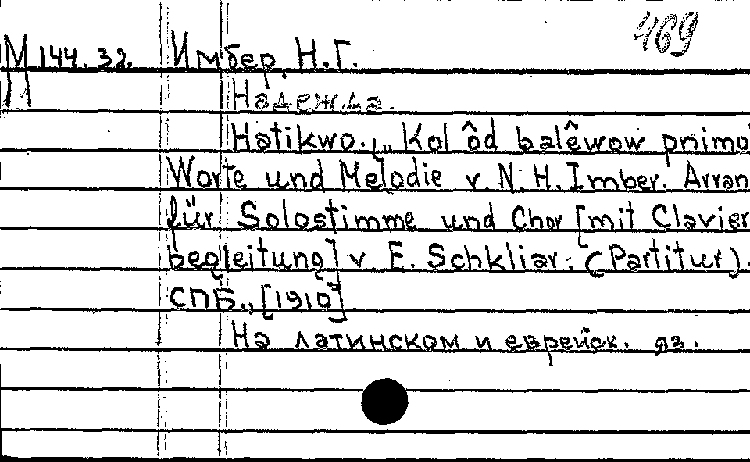 469
М 144.32. Имбер, Н.Г.
Надежда.
Hatikwo. „Kol ôd balêwow pnimo
Worte und Melodie v. N. H. Imber. Arran
für Solostimme und Chor [mit Clavier
begleitung] v. E. Schkliar. (Partitur).
СПБ., [1910]
На латинском и еврейск. яз.